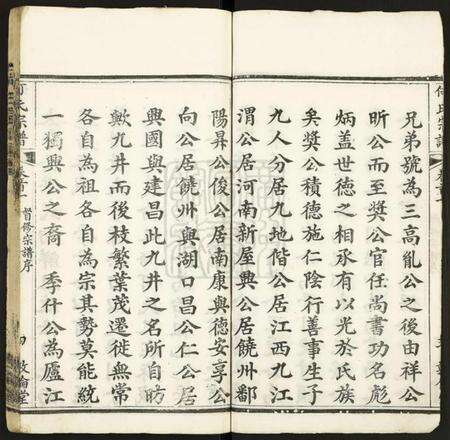 何氏宗譜
兄弟號為三高胤公之後由祥公
昕公而至奬公官任尚書功名彪
炳蓋世德之相承有以光於氏族
矣奬公積德施仁陰行善事生子
九人分居九地偕公居江西九江
渭公居河南新屋興公居饒州鄱
陽昇公俊公居南康與德安享公
向公居饒州與湖口昌公仁公居
興國與建昌此九井之名所自昉
歟九井而後枝繁葉茂遷徙無常
各自為祖各自為宗其勢莫能統
一獨興公之裔 季什公為廬江
何氏宗譜 卷首 修宗譜序 四 敦倫堂